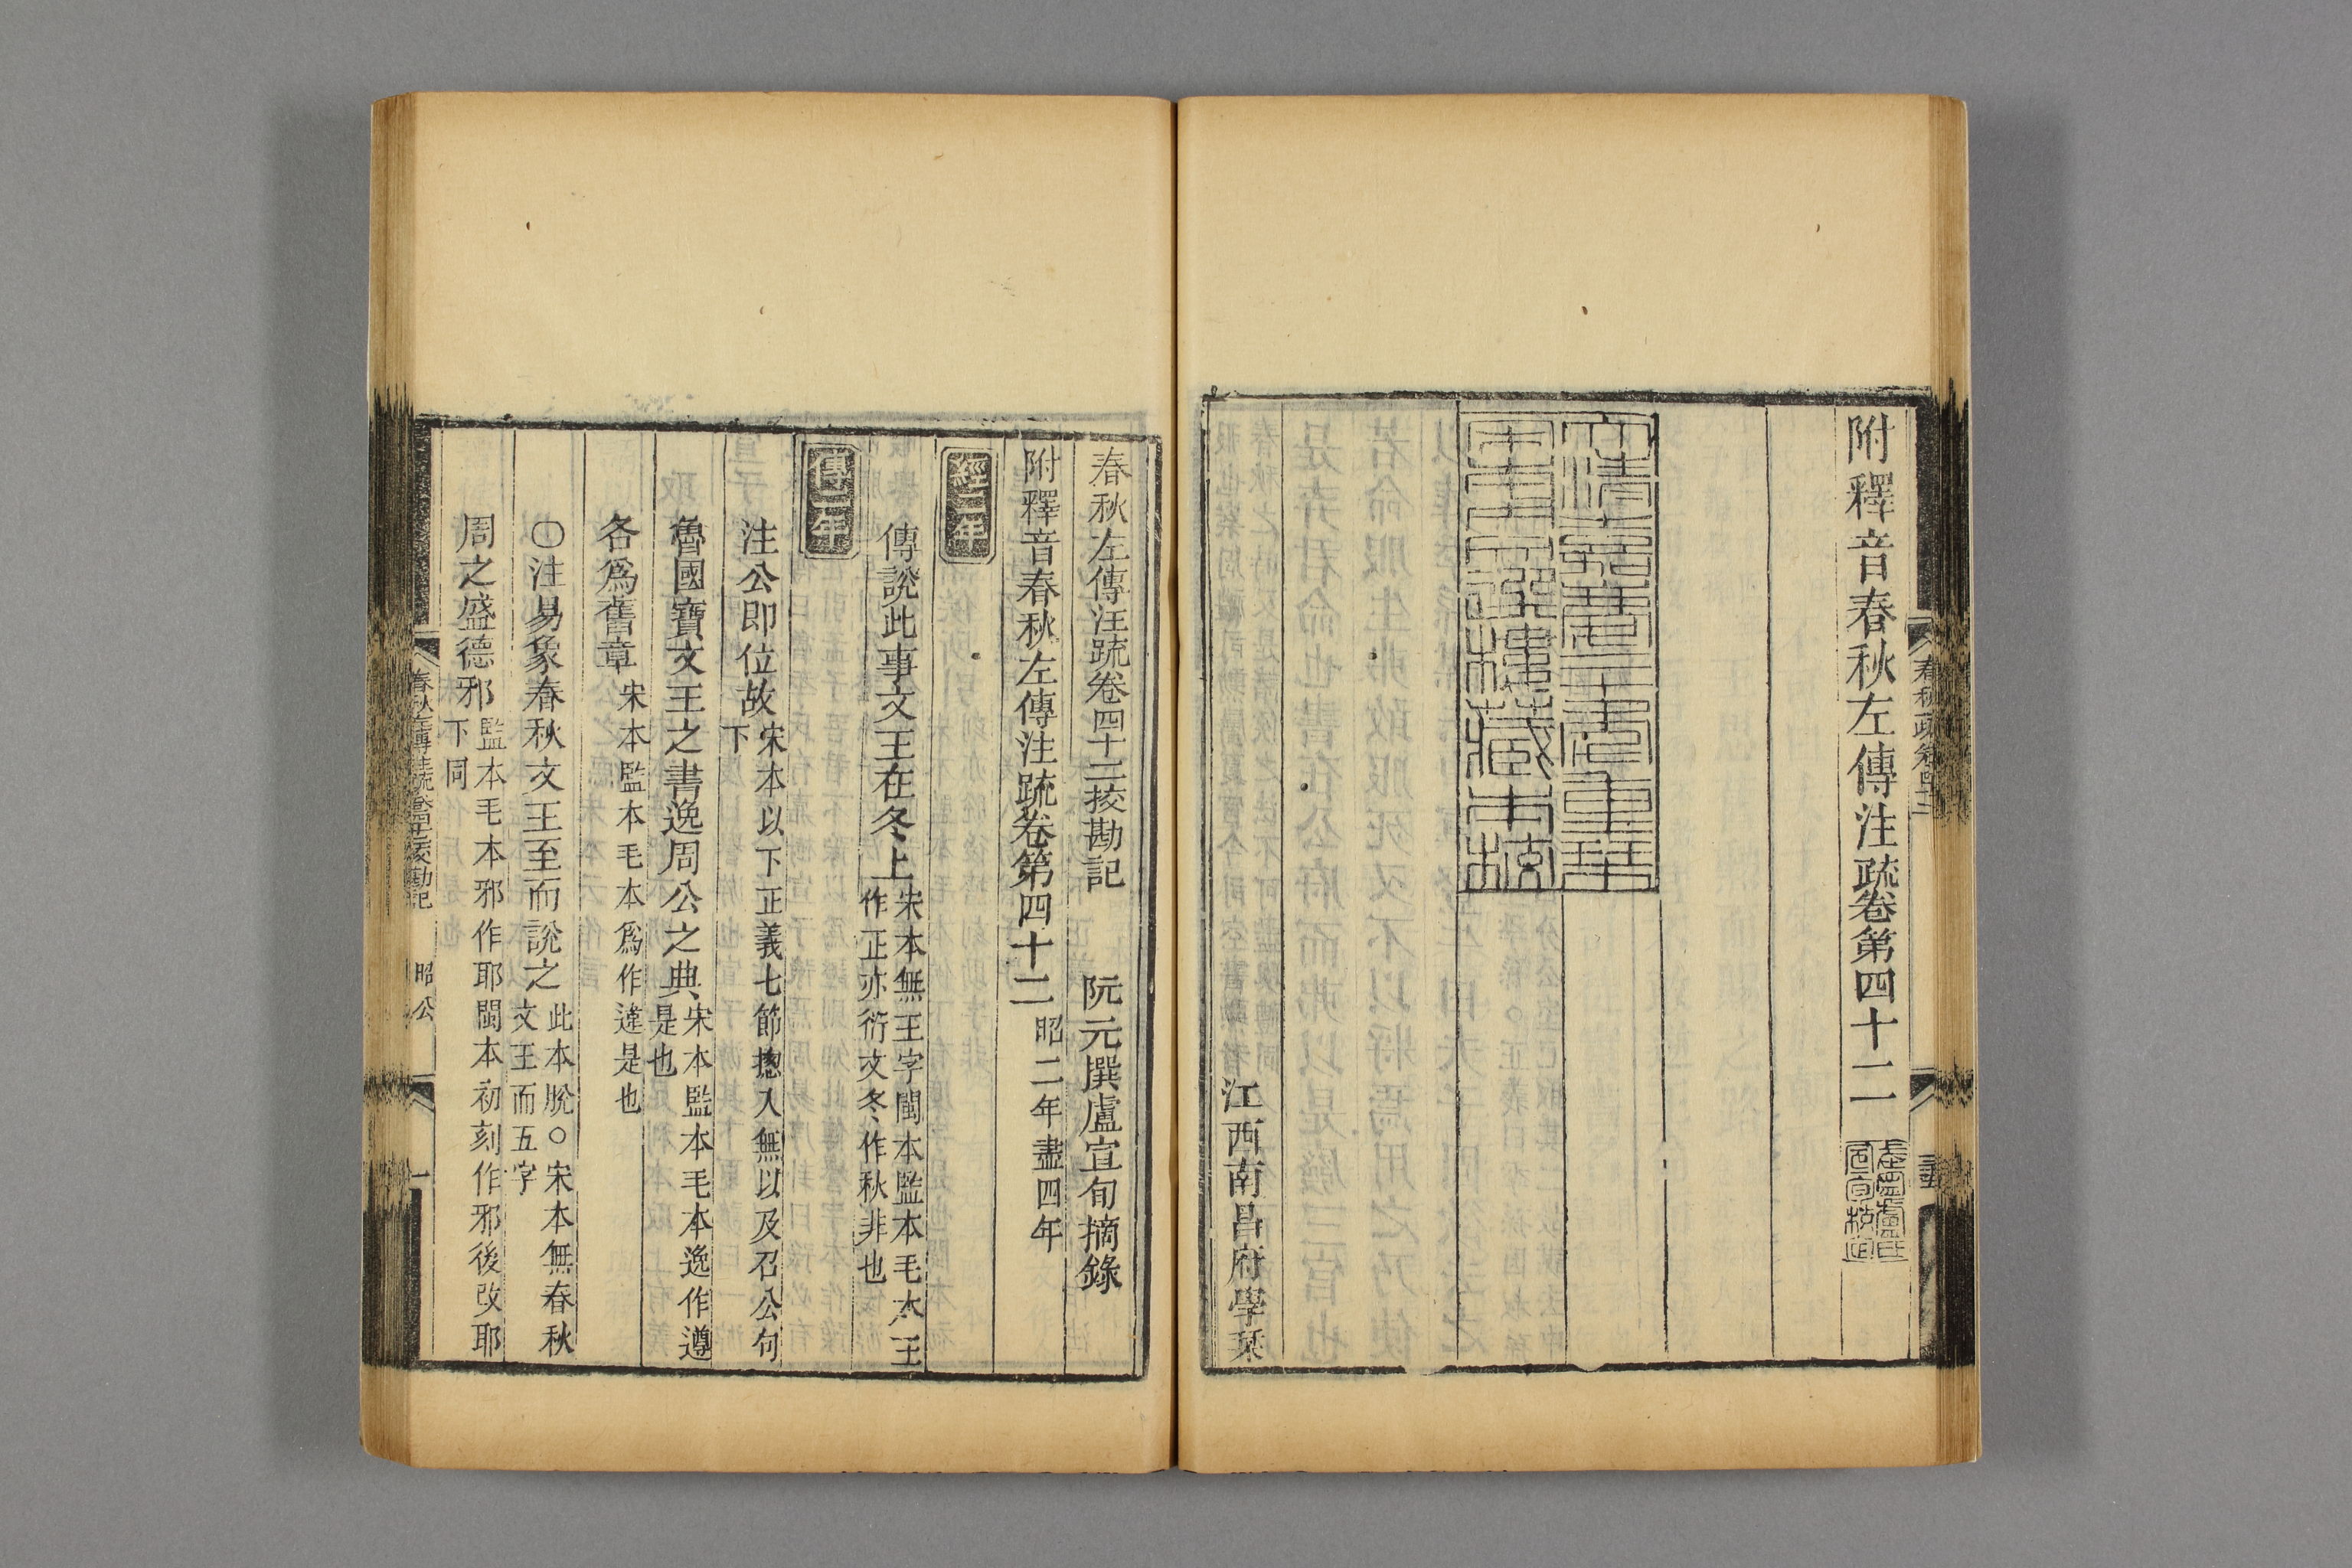 附釋音春秋左傳注疏卷第四十二
大清嘉慶二十年重栞
宋本十三經注疏
江西南昌府學栞
春秋左傳注疏卷四十二挍勘記
阮元撰盧宣旬摘錄
附釋音春秋左傳注疏卷第四十二
昭二年盡四年
經二年
傳說此事文王在冬上
宋本無王字閩本監本毛本王
作正亦衍文冬作秋非也
傳二年
注公即位故
宋本以下正義七節揔入無以及召公句
下
魯國寶文王之書逸周公之典
宋本監本毛本逸作遵
是也
各爲舊章
宋本監本毛本爲作違是也
〇注易象春秋文王至而說之
此本脫〇宋本無春秋
文王而五字
周之盛德邪
監本毛本邪作耶閩本初刻作邪後改耶
下同
昭公
一